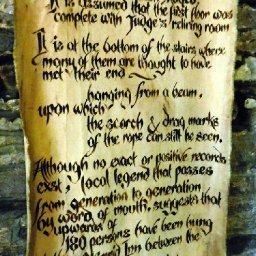 It is assumed that the first floor was
complete with Judge's retiring room
It is at the bottom of the stairs where
many of them are thought to have
met their end
hanging from a beam,
upon which
the scorch & drag marks
of the rope can still be seen.
Although no exact or positive records
exist, local legend that passes
from generation to generation
by word of mouth, suggests that
upwards of
180 persons have been hung
Inn between the